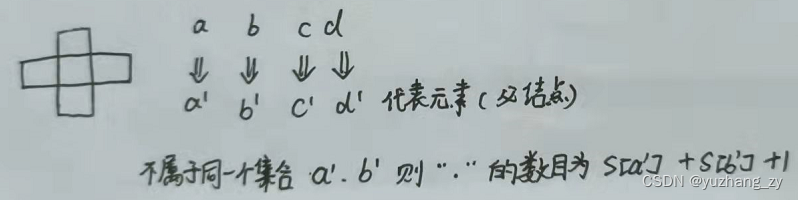 a b c d
⇓ ⇓ ⇓ ⇓
a' b' c' d' 代表元素(父结点)
不属于同一个集合 a'. b' 则 "." 的数目为 S[a'] + S[b'] + 1
CSDN @yuzhang_zy